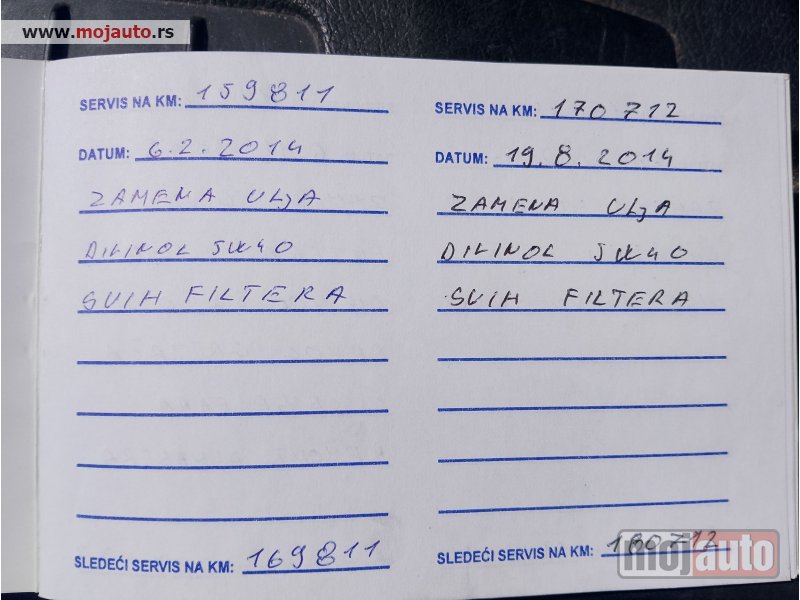 www.mojauto.rs
SERVIS NA KM: 159811
DATUM: 6.2.2014
ZAMENA ULJA
DIVINOL 5W40
SVIH FILTERA
SLEDEĆI SERVIS NA KM: 169811
SERVIS NA KM: 170712
DATUM: 19.8.2014
ZAMENA ULJA
DIVINOL 5W40
SVIH FILTERA
SLEDEĆI SERVIS NA KM: 180712
mojauto